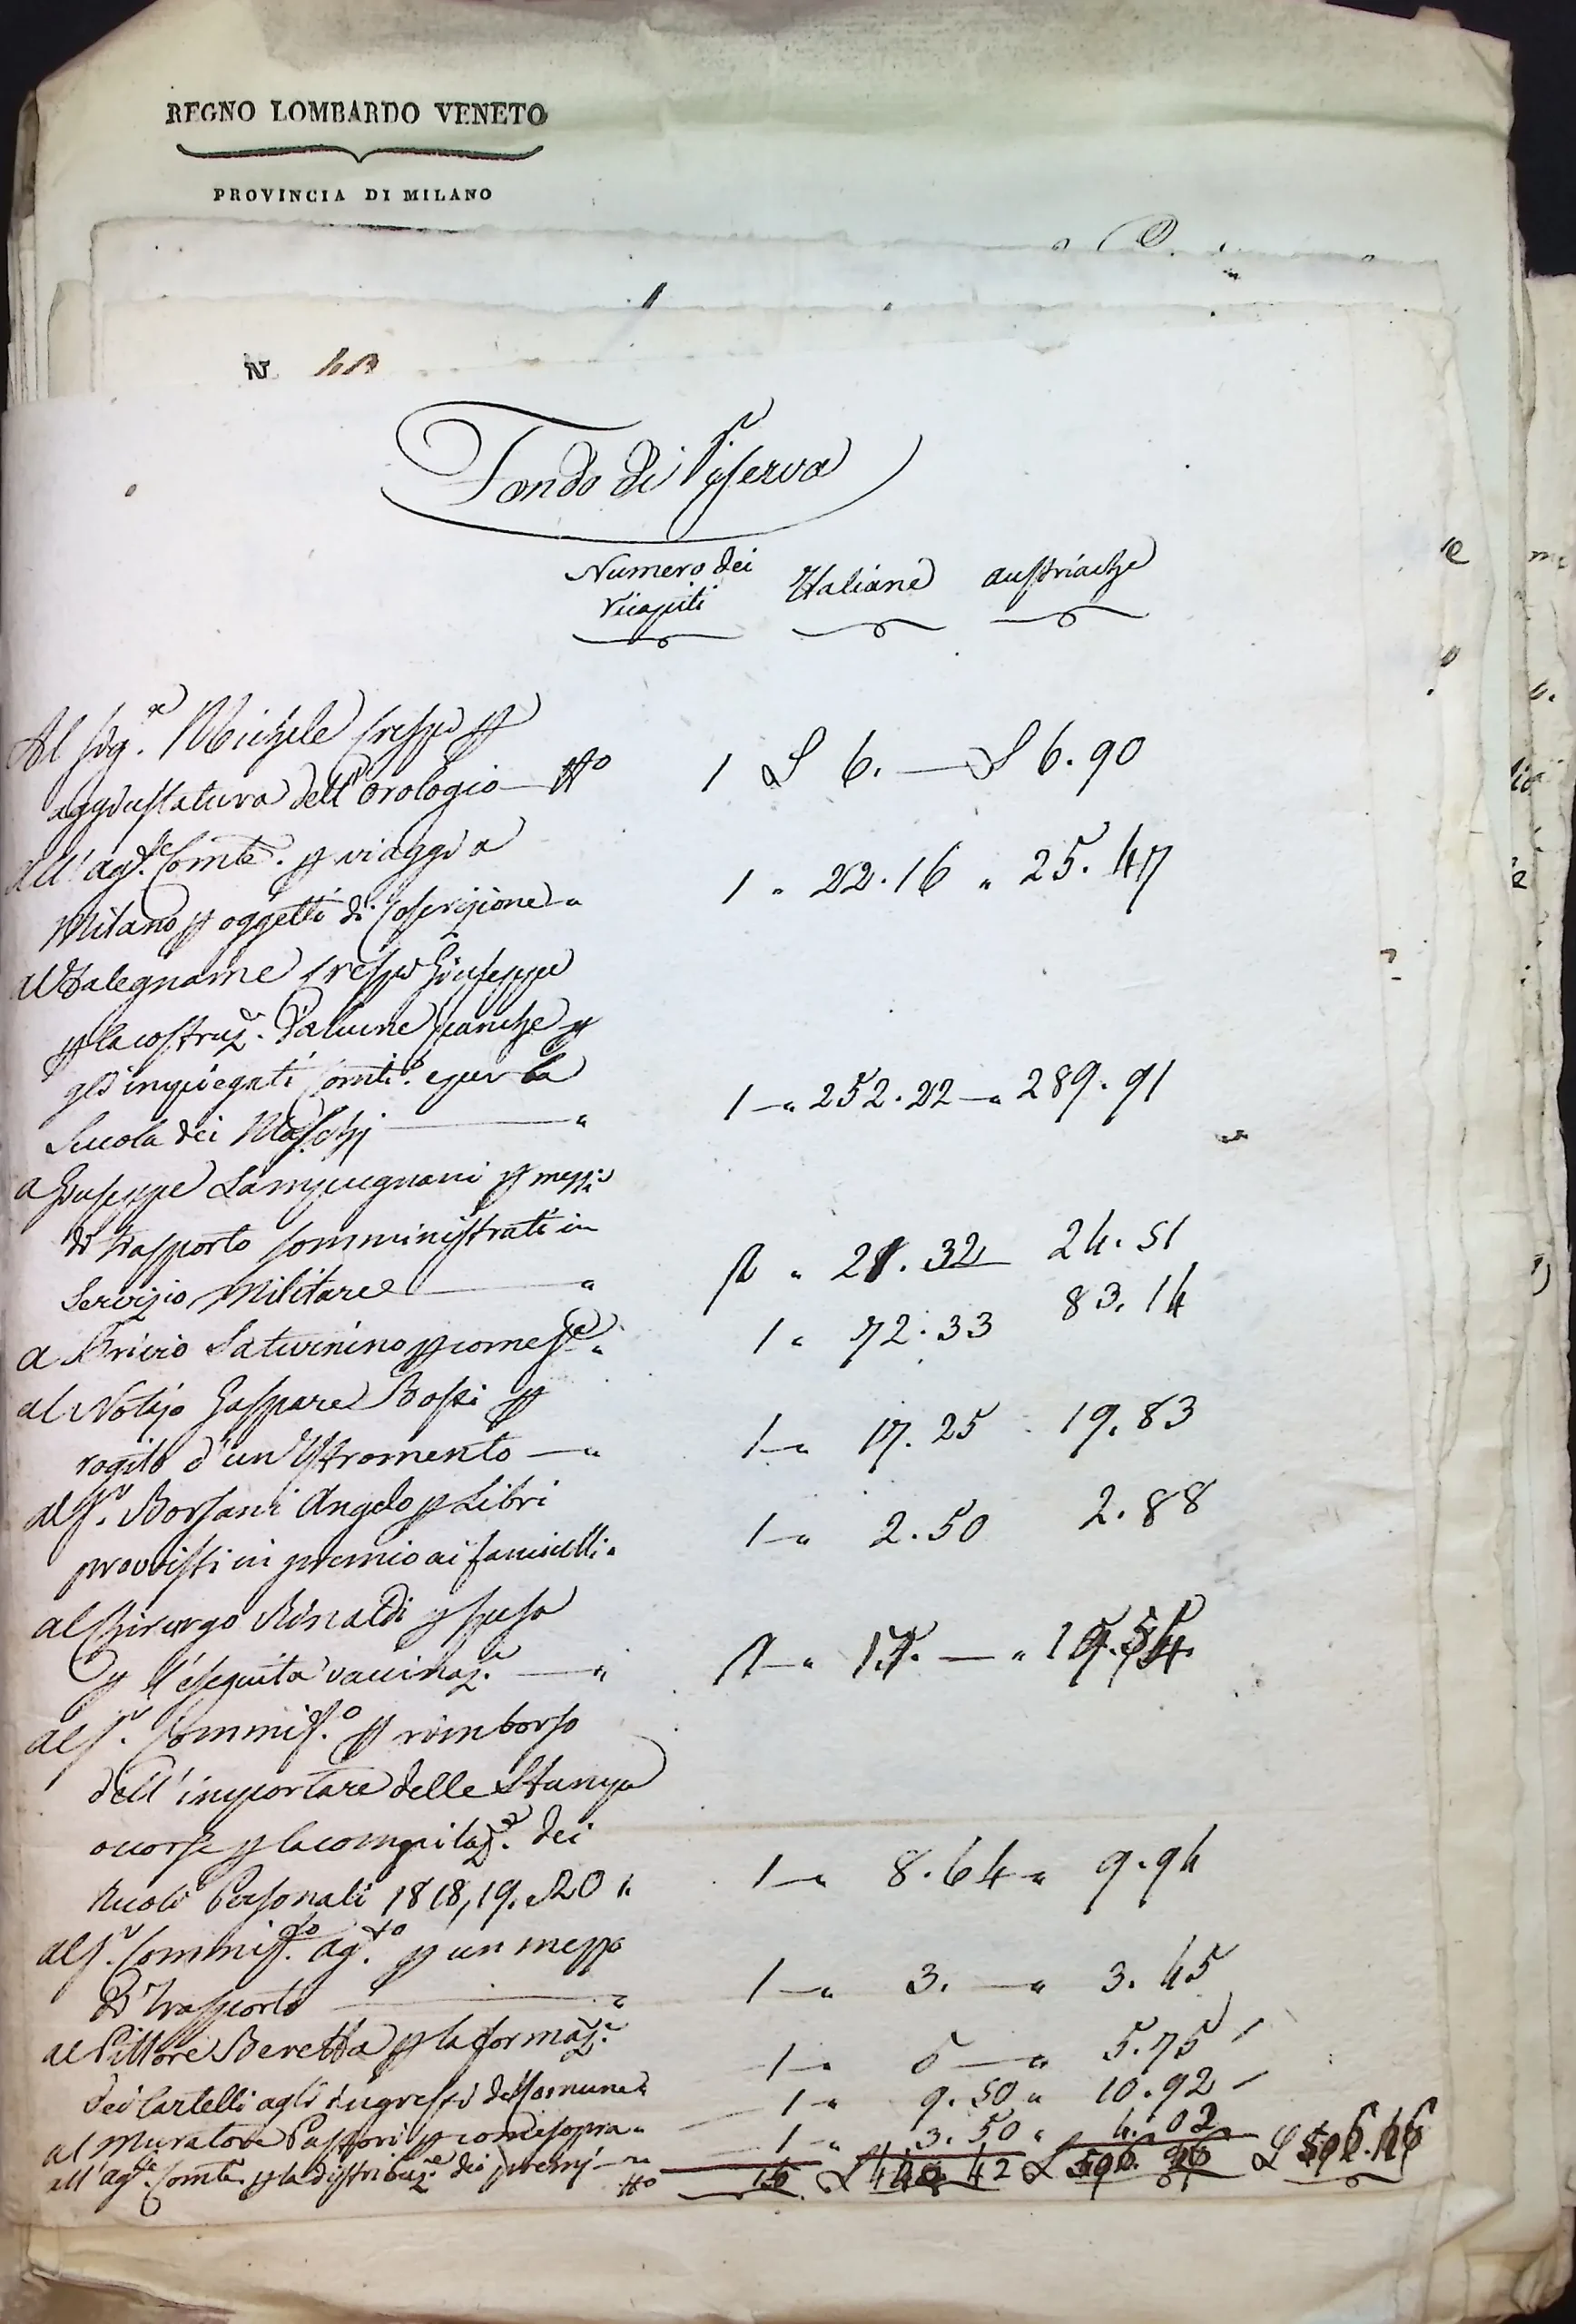 REGNO LOMBARDO VENETO
PROVINCIA DI MILANO
N.
Fondo di Riserva
Numero dei Ricapiti Italiane austriache
Al Sig.e Michele Crespi p
aggiustatura dell'orologio 1 L 6. — L 6.90
all' ag.te Com.le p viaggi a
Milano p oggetti di Coscrizione " 1 " 22.16 " 25.47
al Falegname Crespi Giuseppe
p la costruz.e d'alcune Scanzie p
gl'impiegati Com.li e per la
Scuola dei Maschj — " 1 — " 252.22 — " 289.91
a Giuseppe Lampugnani p mezzi
di trasporto somministrati in
Servizio Militare — " " 21.32 24.51
a Brivio Saturnino p come s.a " 1 " 72.33 83.14
al Notajo Gaspare Bossi p
rogito d'un Istromento — " 1 — " 17.25 19.83
al S.r Borsani Angelo p Libri
provvisti in premio ai fanciulli " 1 — " 2.50 2.88
al Chirurgo Rinaldi p spesa
p l'eseguita vaccinaz.e — "
al S.r Commiss.o p rimborso
dell'importare delle Stampe
occorse p la compilaz.e dei
Ruoli Personali 1818, 19. e 20 " 1 — " 8.64 " 9.94
al S.r Commiss.o ag.to p un mezzo
di trasporto — " 1 — " 3. — " 3.45
al Pittore Beretta p la formaz.e
dei Cartelli agli ingressi del Comune " 1 — " 5 — " 5.75
al Muratore Pastori p come sopra " 1 — " 9.50 " 10.92
all' ag.te Com.le p la distribuz.e dei premj — " 1 — " 3.50 " 4.02